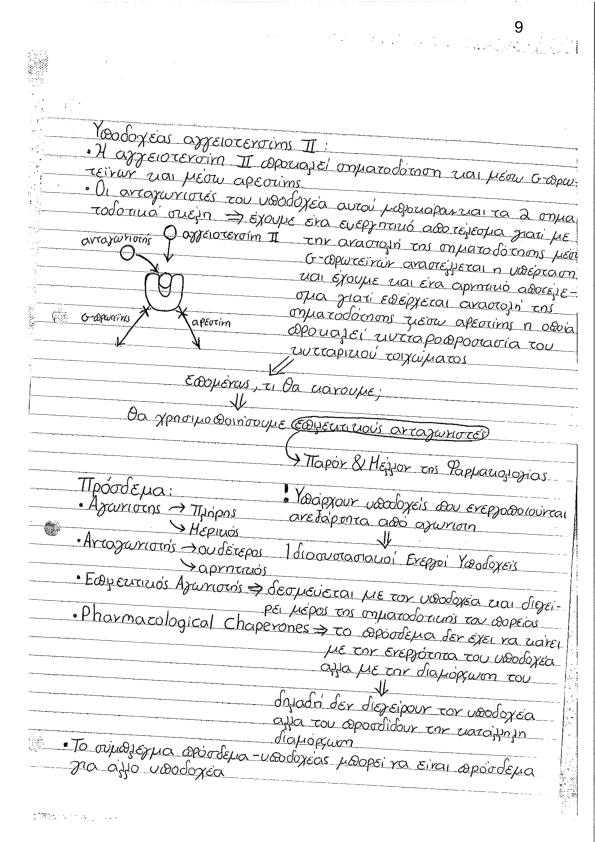 9
Υποδοχέας αγγειοτενσίνης II :
• Η αγγειοτενσίνη II προκαλεί σηματοδότηση και μέσω G-πρω-
τεϊνών και μέσω αρεστίνης.
• Οι ανταγωνιστές του υποδοχέα αυτού μπλοκάραν και τα 2 σημα
τοδοτικά σκέλη ⇒ έχουμε ένα ευεργητικό αποτέλεσμα γιατί με
την αναστολή της σηματοδότησης μέσω
G-πρωτεϊνών αναστέλλεται η υπέρταση
και έχουμε και ένα αρνητικό αποτέλε-
σμα γιατί επέρχεται αναστολή της
σηματοδότησης μέσω αρεστίνης η οποία
προκαλεί κυτταροπροστασία του
κυτταρικού τοιχώματος
ανταγωνιστής
αγγειοτενσίνη II
G-πρωτεΐνης
αρεστίνη
Επομένως, τι θα κάνουμε;
Θα χρησιμοποιήσουμε επιλεκτικούς ανταγωνιστές
→ Παρόν & Μέλλον της Φαρμακολογίας
Πρόσδεμα:
• Αγωνιστής → Πλήρης
↳ Μερικός
! Υπάρχουν υποδοχείς που ενεργοποιούνται
ανεξάρτητα από αγωνιστη
• Ανταγωνιστής → ουδέτερος
↳ αρνητικός
Ιδιοσυστασιακοί Ενεργοί Υποδοχείς
• Επιλεκτικός Αγωνιστής ⇒ δεσμεύεται με τον υποδοχέα και διεγεί-
ρει μέρος της σηματοδοτικής του πορείας
• Pharmacological Chaperones ⇒ το πρόσδεμα δεν έχει να κάνει
με την ενεργότητα του υποδοχέα
αλλα με την διαμόρφωση του
δηλαδή δεν διεγείρουν τον υποδοχέα
αλλα του προσδίδουν την κατάλληλη
διαμόρφωση
• Το σύμπλεγμα πρόσδεμα-υποδοχέας μπορεί να είναι πρόσδεμα
για άλλο υποδοχέα